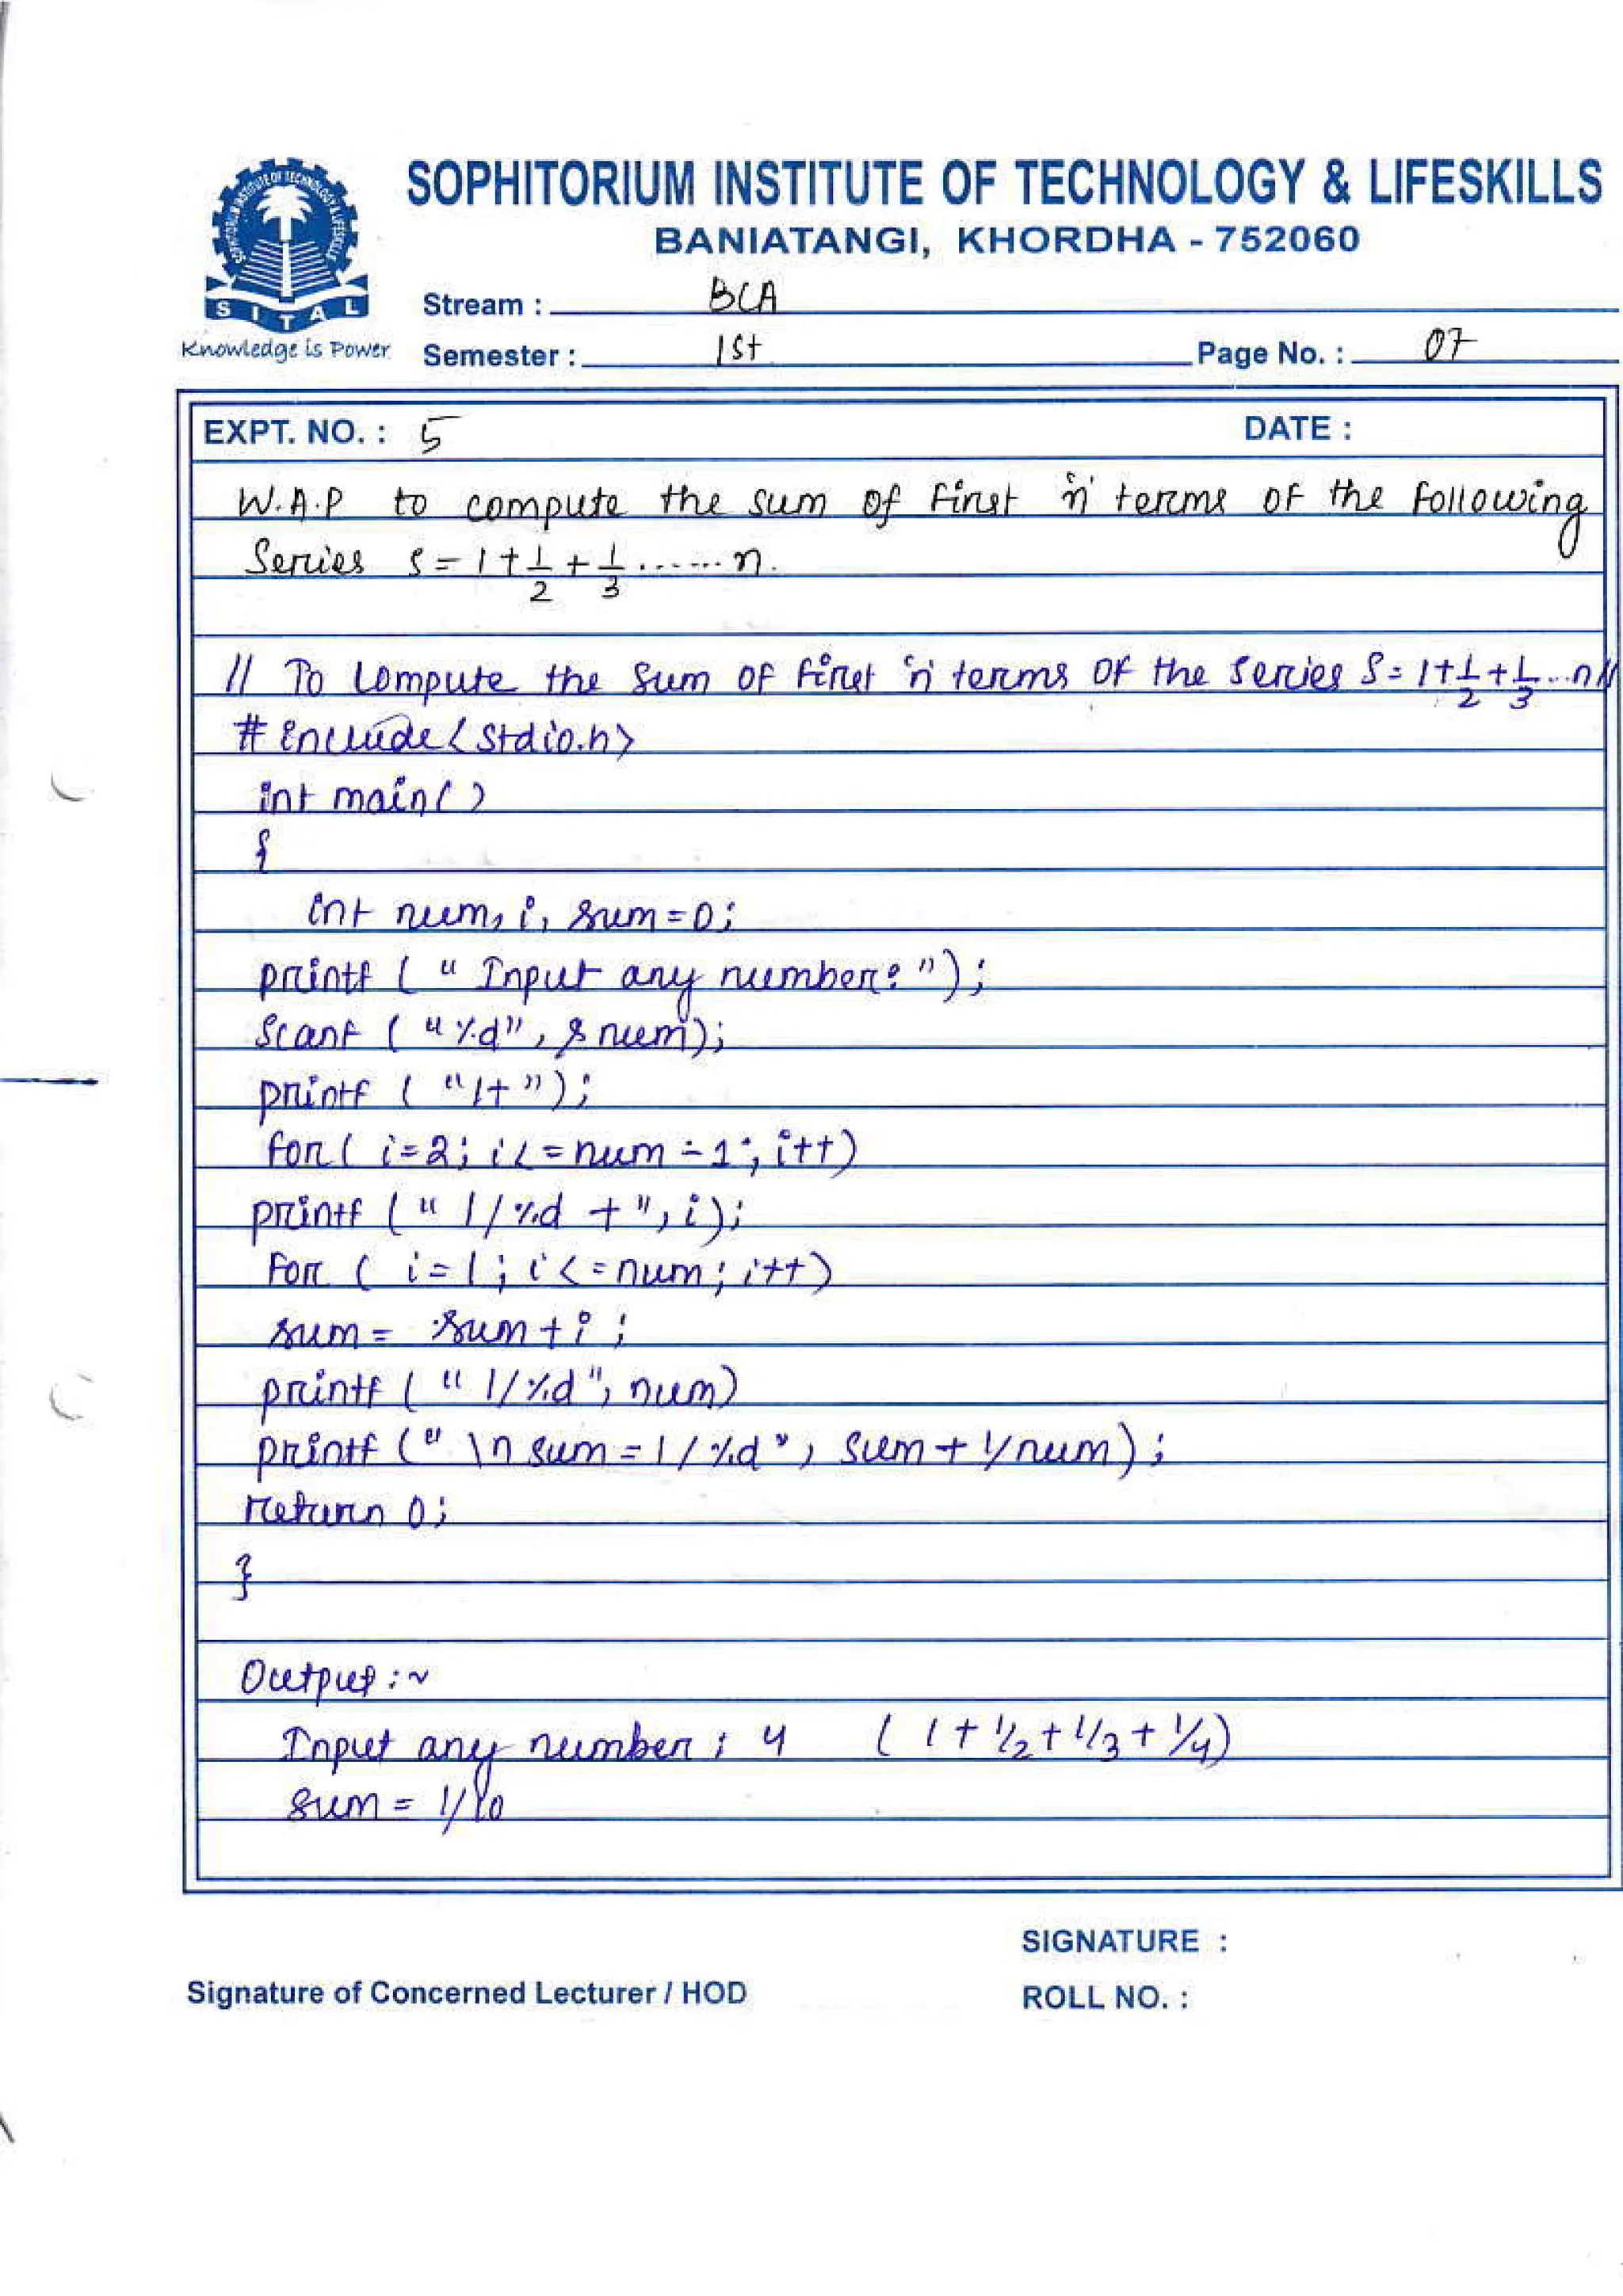 SOPHITORIUM INSTITUTE OF TECHNOLOGY & LIFESKILLS
BANIATANGI, KHORDHA - 752060
SOPHITORIUM INSTITUTE OF TECHNOLOGY & LIFESKILLS
SITAL
Knowledge is Power
Stream : BCA
Semester : 1st Page No. : 07
EXPT. NO. : 5 DATE :
W.A.P to compute the sum of first 'n' terms of the following
Series S = 1 + 1/2 + 1/3 ....... n.
// To compute the sum of first 'n' terms of the series S = 1+1/2+1/3...n//
# include <stdio.h>
int main( )
{
int num, i, sum=0;
printf ( " Input any number: ");
Scanf ( "%d", & num);
printf ( "1+ ");
for( i=2; i<=num -1; i++)
printf ( " 1/%d +", i);
For ( i=1; i<=num; i++)
sum = sum+i ;
printf ( " 1/%d", num)
printf (" \n sum = 1/%d", sum + 1/num) ;
return 0;
}
Output :~
Input any number : 4 ( 1 + 1/2 + 1/3 + 1/4)
sum = 1/10
SIGNATURE :
Signature of Concerned Lecturer / HOD
ROLL NO. :